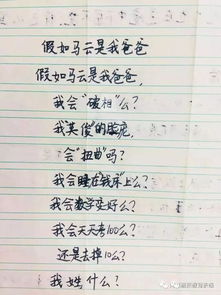 假如马云是我爸爸
假如马云是我爸爸,
我会“破相”么?
我英俊”的脸庞,
会“扭曲”吗?
我会睡在钱床上么?
我会数学变好么?
我会天天考100么?
还是去掉10么?
我姓什么?